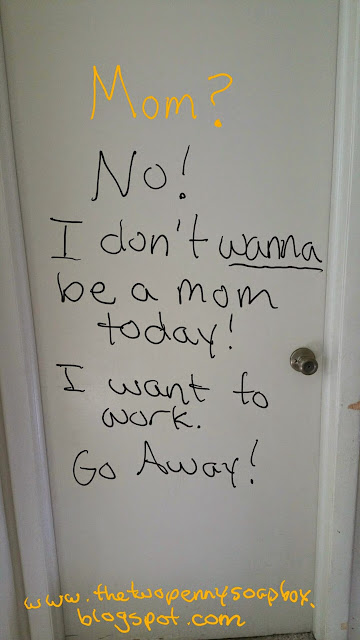 Mom?
No!
I don't wanna
be a mom
today!
I want to
work.
Go Away!
www.thetwopennysoapbox.
blogspot.com